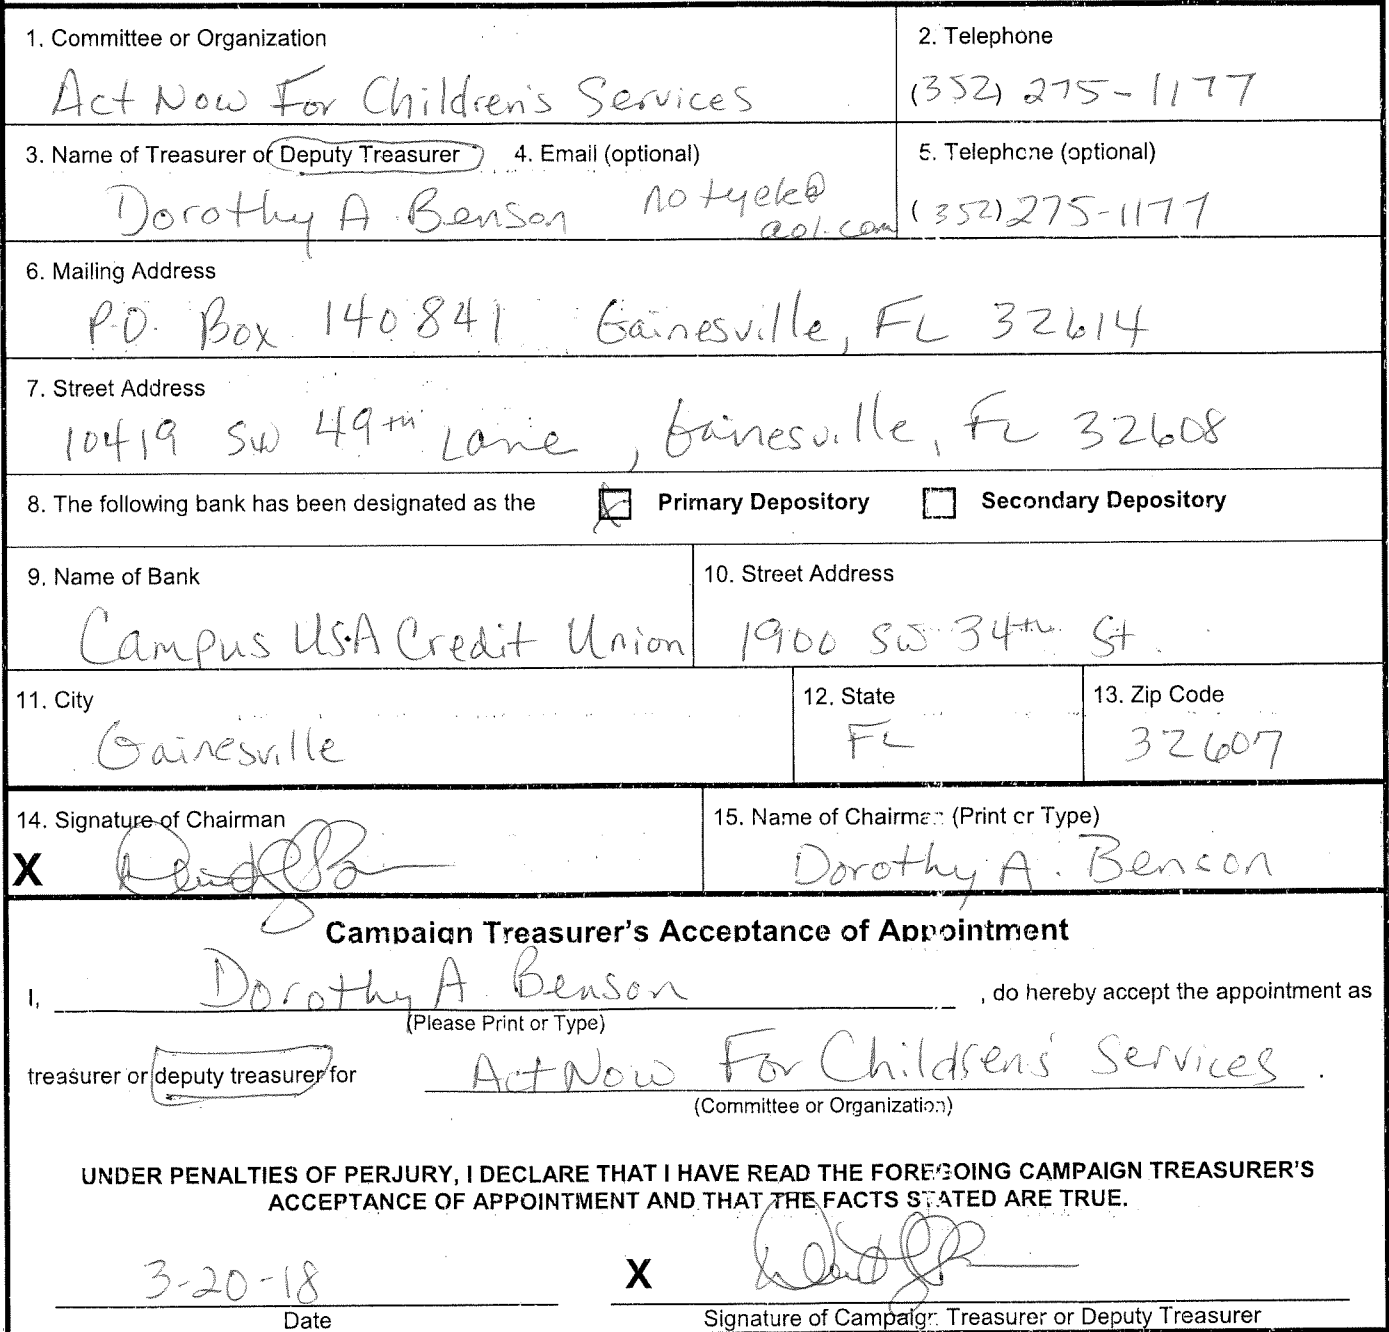 1. Committee or Organization
2. Telephone
Act Now For Children's Services
(352) 275-1177
3. Name of Treasurer or Deputy Treasurer
4. Email (optional)
5. Telephone (optional)
Dorothy A. Benson
aol.com
(352) 275-1177
6. Mailing Address
P.O. Box 140841 Gainesville, FL 32614
7. Street Address
10419 SW 49th Lane, Gainesville, FL 32608
8. The following bank has been designated as the Primary Depository Secondary Depository
9. Name of Bank
10. Street Address
Campus USA Credit Union
1900 SW 34th St.
11. City
12. State
13. Zip Code
Gainesville
FL
32607
14. Signature of Chairman
15. Name of Chairman (Print or Type)
X
Dorothy A. Benson
Campaign Treasurer's Acceptance of Appointment
I, Dorothy A. Benson , do hereby accept the appointment as
(Please Print or Type)
treasurer or deputy treasurer for Act Now For Childrens' Services .
(Committee or Organization)
UNDER PENALTIES OF PERJURY, I DECLARE THAT I HAVE READ THE FOREGOING CAMPAIGN TREASURER'S
ACCEPTANCE OF APPOINTMENT AND THAT THE FACTS STATED ARE TRUE.
3-20-18
X
Date
Signature of Campaign Treasurer or Deputy Treasurer